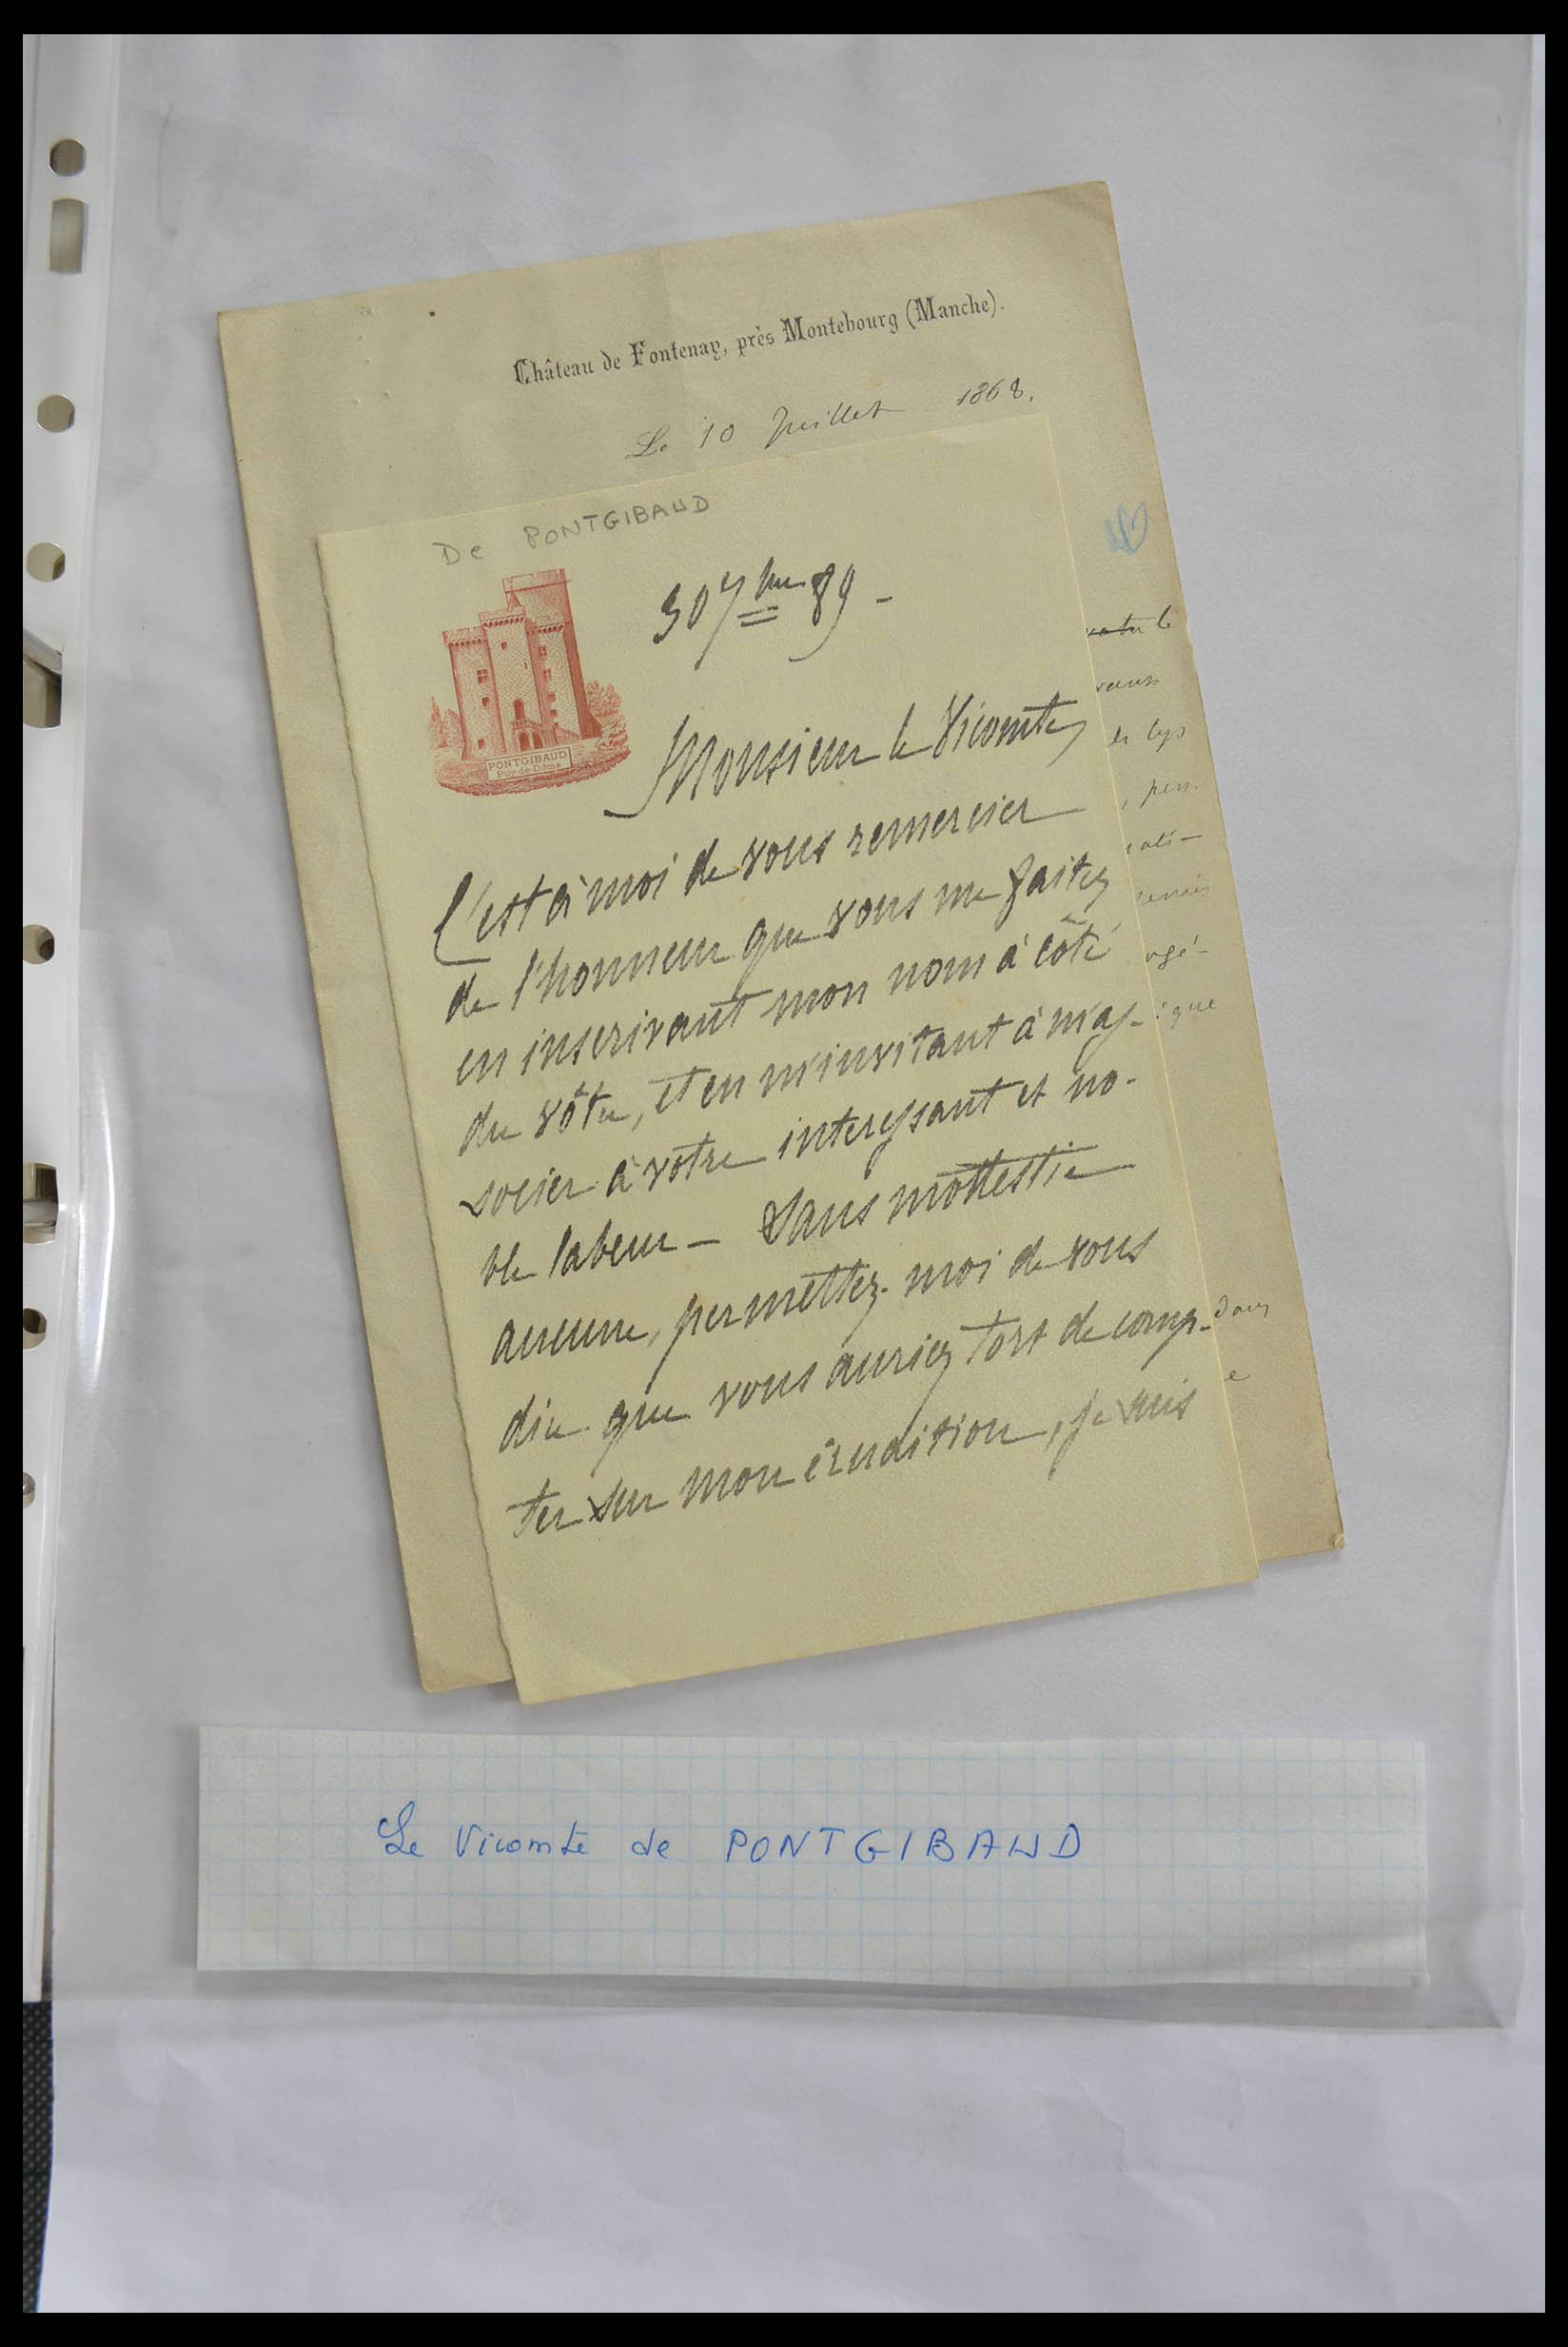 Château de Fontenay, près Montebourg (Manche).
Le 10 Juillet 1868.
De PONTGIBAUD
30 7bre 89 -
PONTGIBAUD
Puy-de-Dôme
Monsieur le Vicomte
C'est à moi de vous remercier
de l'honneur que vous me faites
en inscrivant mon nom à côté
du vôtre, et en m'invitant à m'as-
socier à votre interessant et no-
ble labeur - Sans modestie
aucune, permettez-moi de vous
dire que vous auriez tort de comp-
ter sur mon érudition, je suis
le
les lys
, pen-
ogé-
ique
dans
e
Le Vicomte de PONTGIBAUD